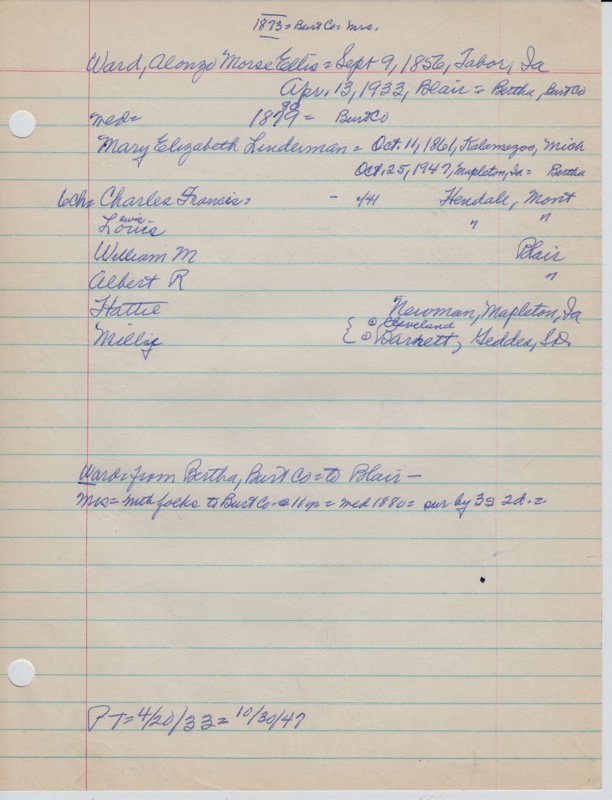 1873 = Burt Co = Mrs.
Ward, Alonzo Morse Ellis = Sept 9, 1856, Tabor, Ia
Apr. 13, 1933, Blair = Bertha, Burt Co
80
med = 1879 = Burt Co
Mary Elizabeth Linderman = Oct. 11, 1861, Kalamazoo, Mich
Oct. 25, 1947, Mapleton, Ia = Bertha
6ch = Charles Francis = - Hendale, Mont
Lewis
Louis " "
William M Blair
Albert R "
Hattie Newman, Mapleton, Ia
① Cleveland
Millie { ② Barnett, Geddes, S.D.
Ward = from Bertha, Burt Co = to Blair -
Mrs = with folks to Burt Co @ 11 = med 1880 = sur by 3s 2d. =
PT = 4/20/33 = 10/30/47